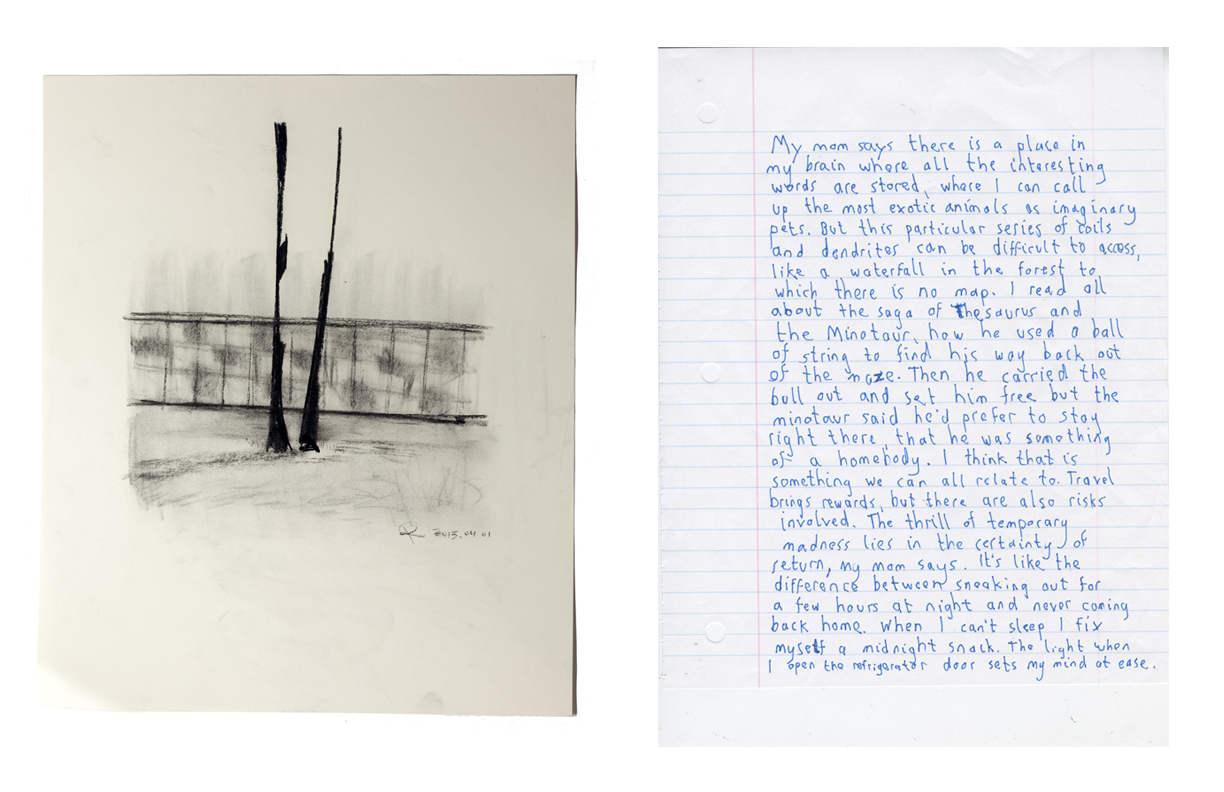 2013.04.01
My mom says there is a place in
my brain where all the interesting
words are stored, where I can call
up the most exotic animals as imaginary
pets. But this particular series of coils
and dendrites can be difficult to access,
like a waterfall in the forest to
which there is no map. I read all
about the saga of Thesaurus and
the Minotaur, how he used a ball
of string to find his way back out
of the maze. Then he carried the
bull out and set him free but the
minotaur said he'd prefer to stay
right there, that he was something
of a homebody. I think that is
something we can all relate to. Travel
brings rewards, but there are also risks
involved. The thrill of temporary
madness lies in the certainty of
return, my mom says. It's like the
difference between sneaking out for
a few hours at night and never coming
back home. When I can't sleep I fix
myself a midnight snack. The light when
I open the refrigerator door sets my mind at ease.